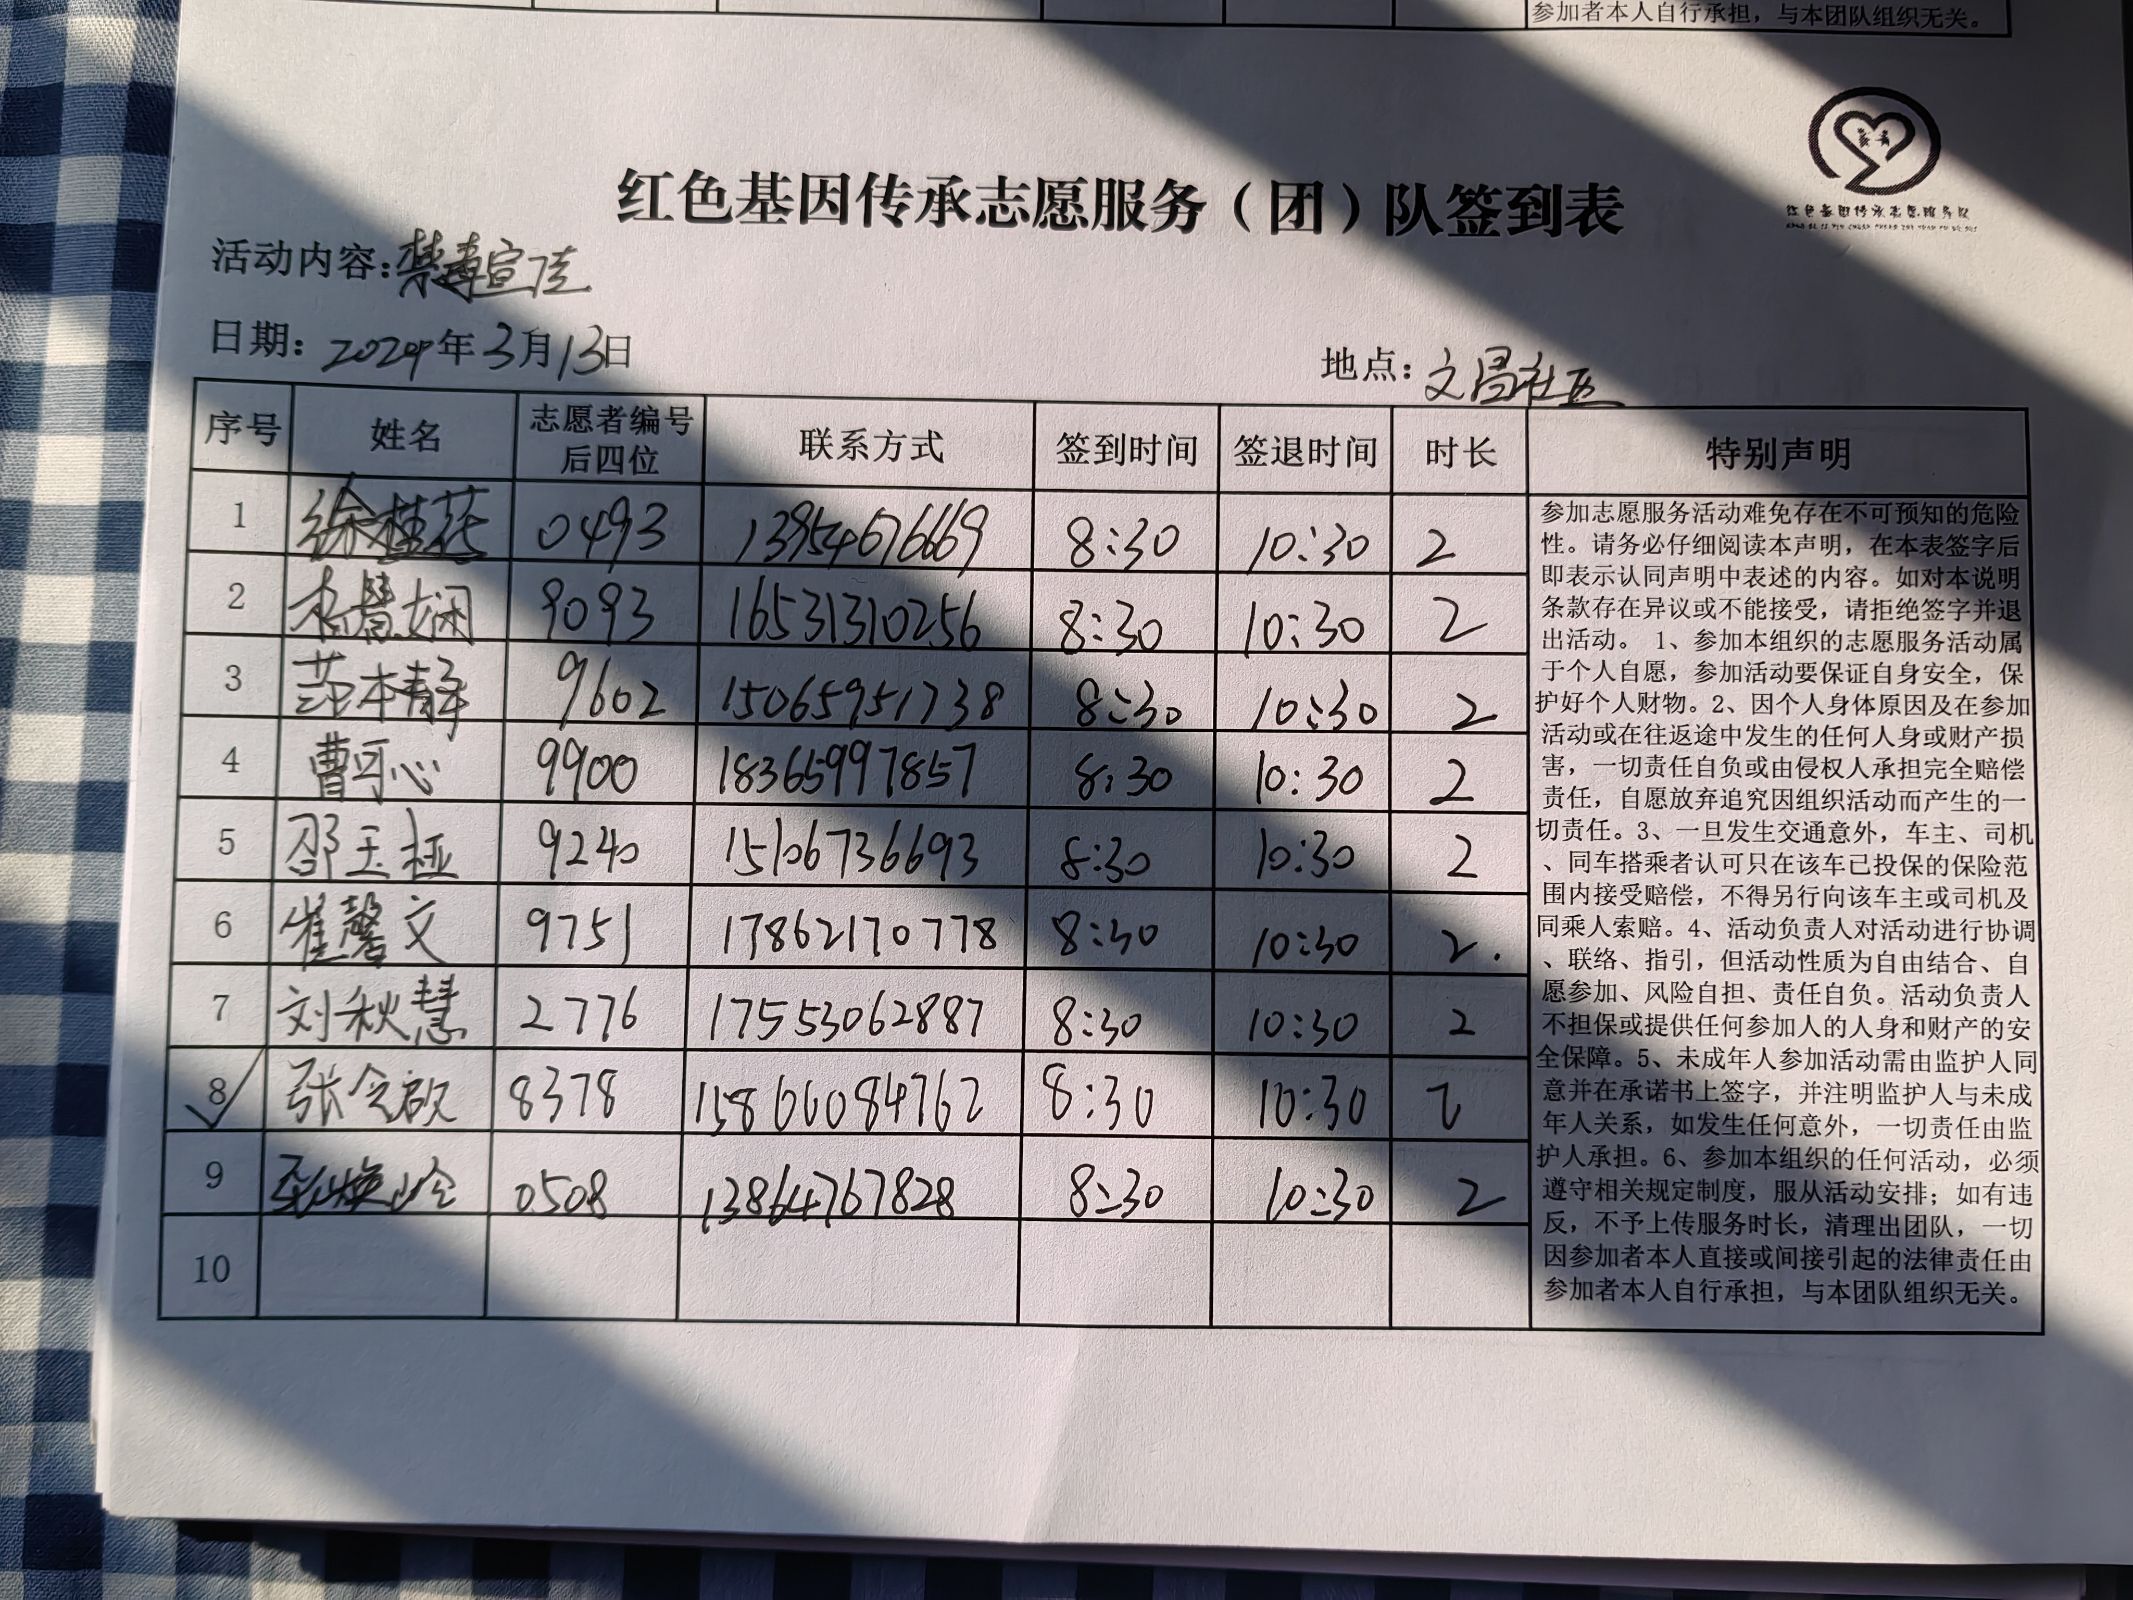 参加者本人自行承担，与本团队组织无关。
红色基因传承志愿服务队
红色基因传承志愿服务（团）队签到表
活动内容：禁毒宣传
日期：2024年3月13日
地点：文昌社区
序号 姓名 志愿者编号后四位 联系方式 签到时间 签退时间 时长 特别声明
1 徐桂花 0493 13954676669 8:30 10:30 2
2 李慧娴 9093 16531310256 8:30 10:30 2
3 范本静 9602 15065951738 8:30 10:30 2
4 曹可心 9900 18365997857 8:30 10:30 2
5 邵玉桠 9240 15106736693 8:30 10:30 2
6 崔馨文 9751 17862170778 8:30 10:30 2.
7 刘秋慧 2776 17553062887 8:30 10:30 2
8 张令啟 8378 15866084762 8:30 10:30 2
9 0508 13864767828 8:30 10:30 2
10
参加志愿服务活动难免存在不可预知的危险
性。请务必仔细阅读本声明，在本表签字后
即表示认同声明中表述的内容。如对本说明
条款存在异议或不能接受，请拒绝签字并退
出活动。 1、参加本组织的志愿服务活动属
于个人自愿，参加活动要保证自身安全，保
护好个人财物。2、因个人身体原因及在参加
活动或在往返途中发生的任何人身或财产损
害，一切责任自负或由侵权人承担完全赔偿
责任，自愿放弃追究因组织活动而产生的一
切责任。3、一旦发生交通意外，车主、司机
、同车搭乘者认可只在该车已投保的保险范
围内接受赔偿，不得另行向该车主或司机及
同乘人索赔。4、活动负责人对活动进行协调
、联络、指引，但活动性质为自由结合、自
愿参加、风险自担、责任自负。活动负责人
不担保或提供任何参加人的人身和财产的安
全保障。5、未成年人参加活动需由监护人同
意并在承诺书上签字，并注明监护人与未成
年人关系，如发生任何意外，一切责任由监
护人承担。6、参加本组织的任何活动，必须
遵守相关规定制度，服从活动安排；如有违
反，不予上传服务时长，清理出团队，一切
因参加者本人直接或间接引起的法律责任由
参加者本人自行承担，与本团队组织无关。